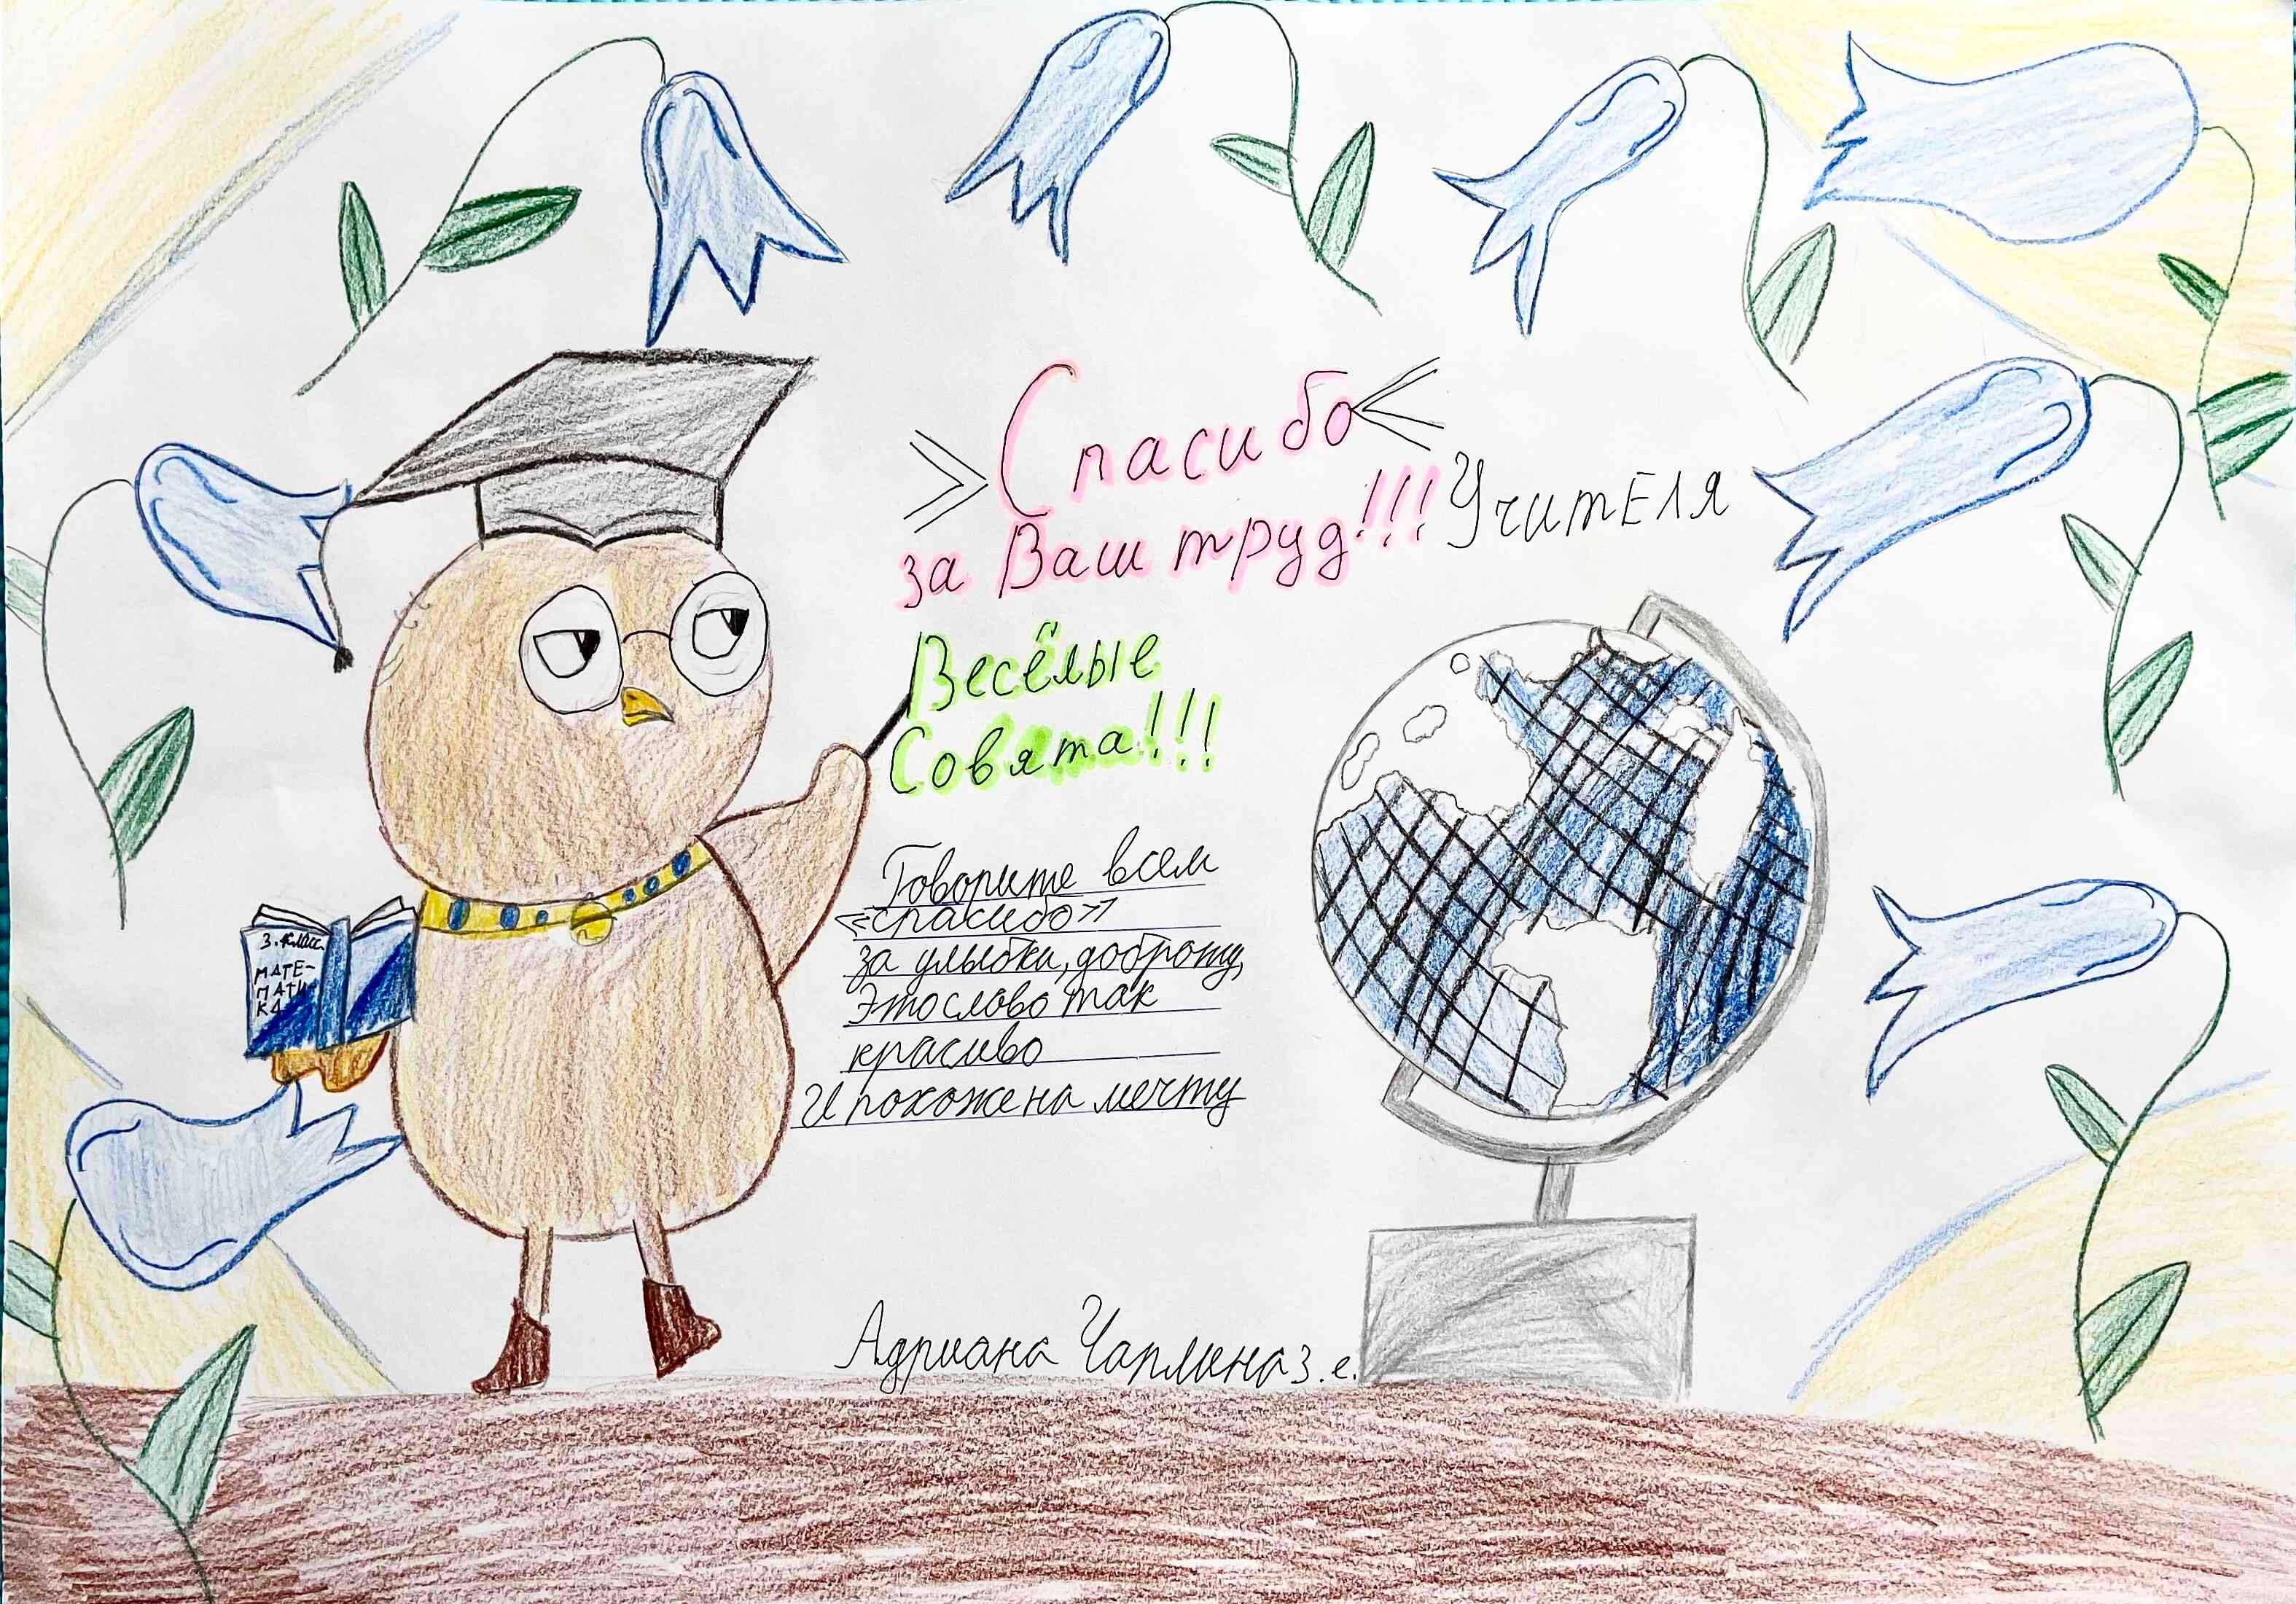 »Спасибо«
за Ваш труд!!! УчитЕЛЯ
Весёлые
Совята!!!
Говорите всем
«спасибо»
за улыбки, доброту,
Это слово так
красиво
И похоже на мечту
3. класс
МАТЕ-
МАТИ-
КА
Адриана Чаплина 3. е.